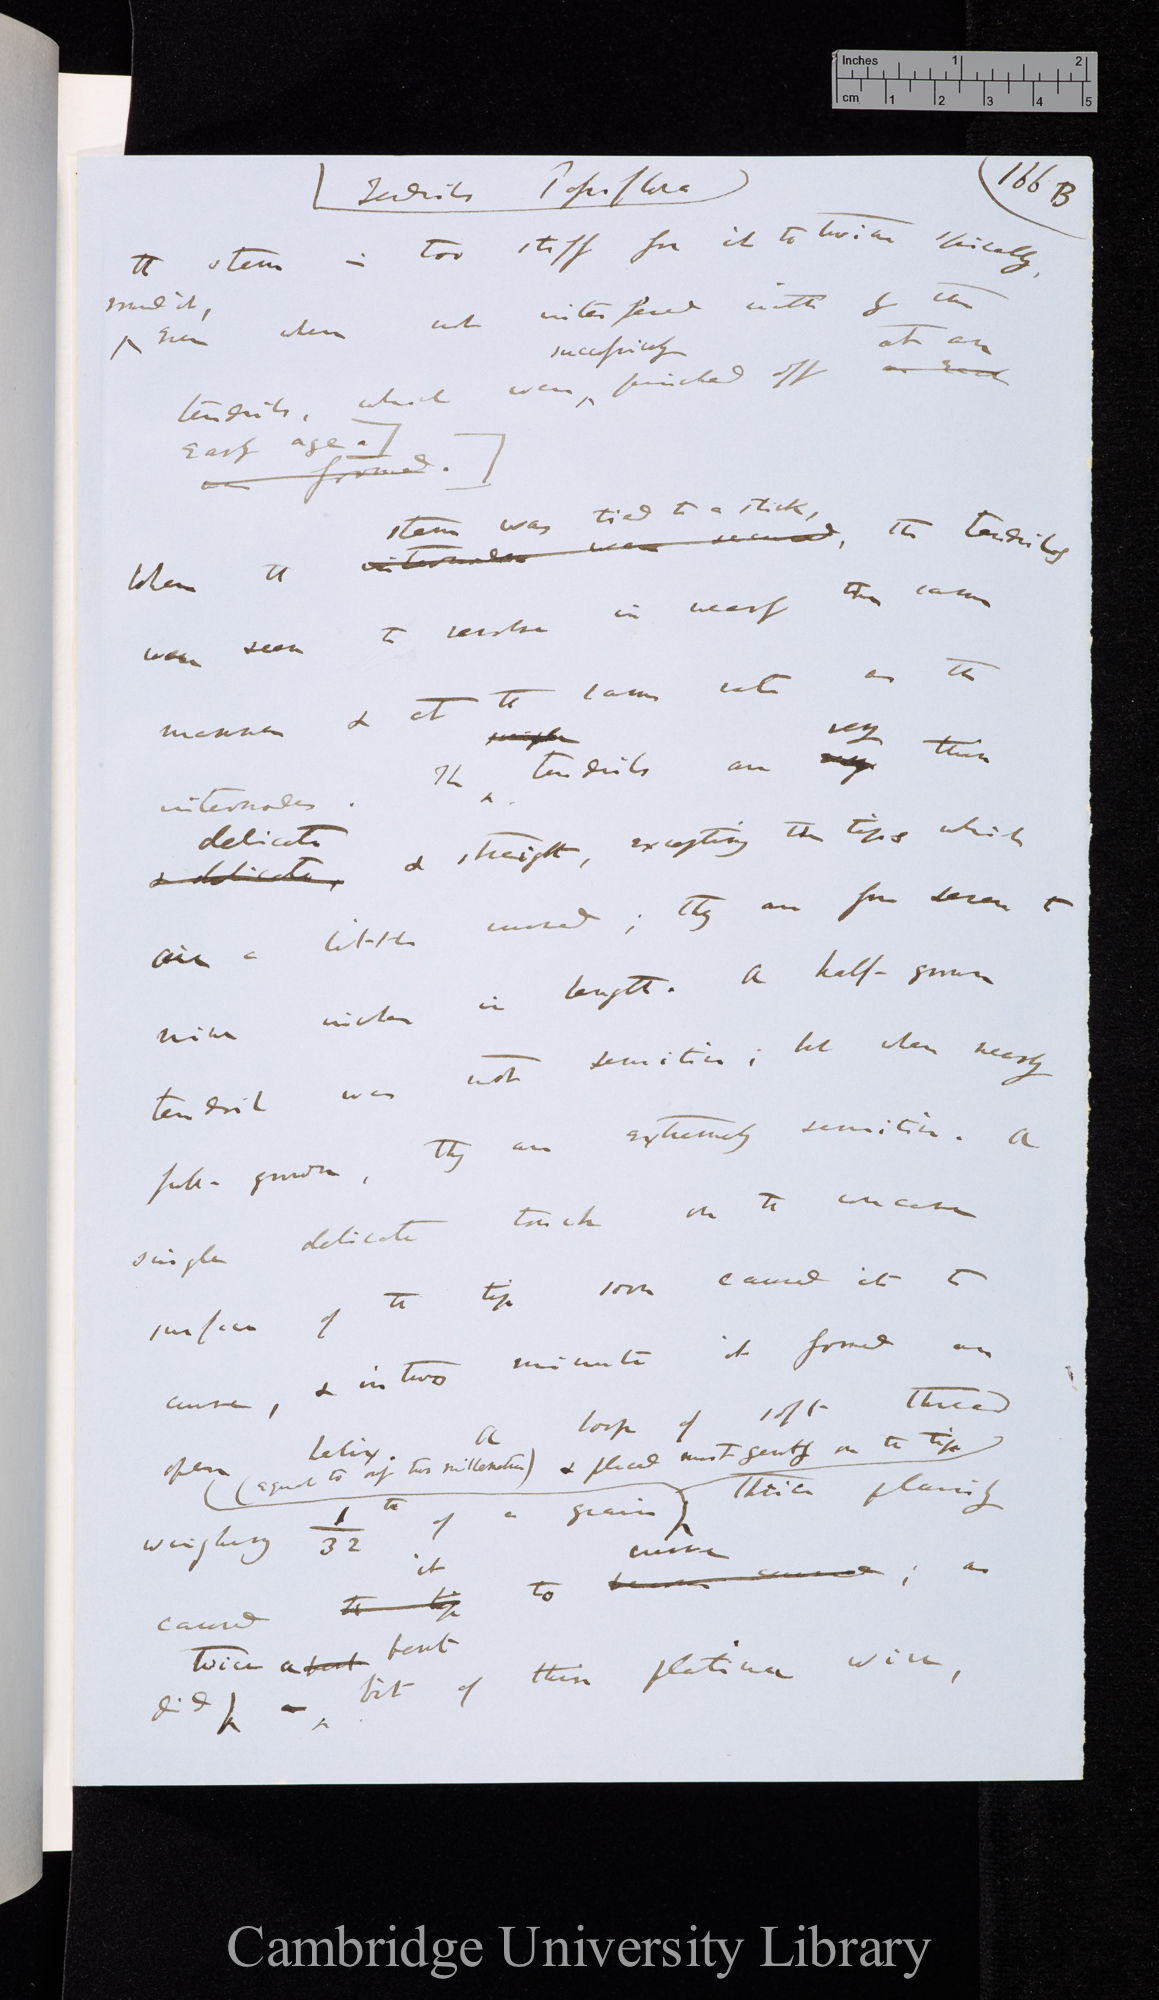 Inches 1 2
cm 1 2 3 4 5
Tendrils Passiflora
166 B
the stem is too stiff for it to twine spirally,
round it,
Even when not interfered with by the
successively at an
tendrils, which were pinched off as each
early age.
was formed.
stem was tied to a stick,
When the internodes were secured, the tendrils
were seen to revolve in nearly the same
manner & at the same rate as the
single very
internodes. The tendrils are very thin
delicate
& delicate, & straight, excepting the tips which
are a little curved; they are from seven to
nine inches in length. A half-grown
tendril was not sensitive; but when nearly
full-grown, they are extremely sensitive. A
single delicate touch on the concave
surface of the tip soon caused it to
curve, & in two minutes it formed an
open helix. A loop of soft thread
(equal to only two millemetres) & placed most gently on the tip
weighing 1/32th of a grain thrice plainly
it curve
caused the tip to become curved; as
twice a bent bent
did a bit of thin platina wire,
Cambridge University Library